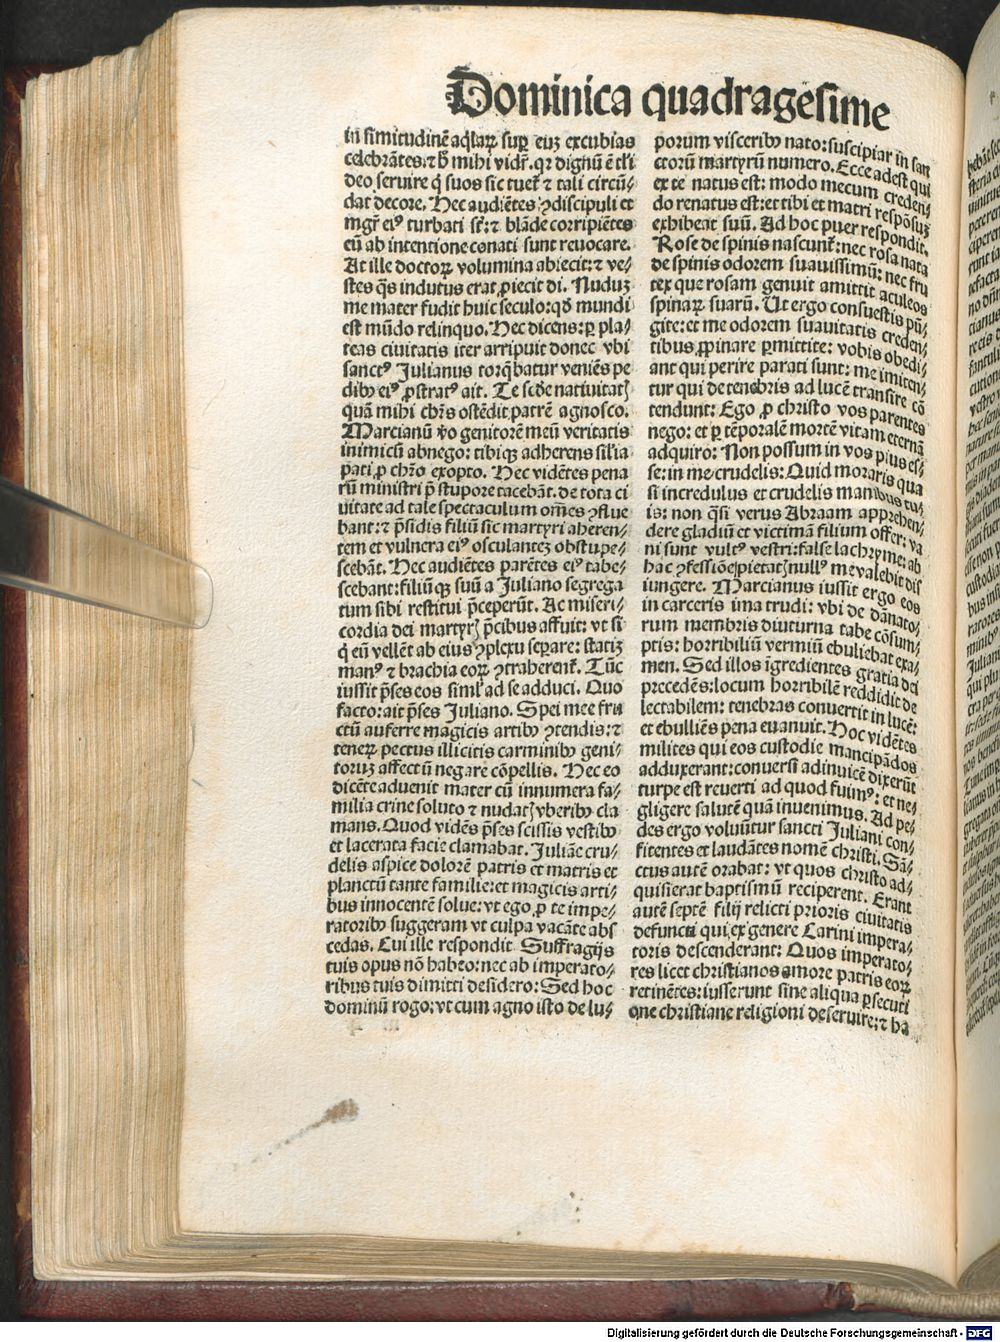 Dominica quadragesime
in similitudinē aq̄laꝝ sup̲ eiꝰ excubias
celebrātes: ⁊ h̄ mihi vidr̄. qꝛ dignū ē tli
deo seruire q̇ suos sic tuet̄ ⁊ tali circū⸗
dat decore. Hec audiētes ꝯdiscipuli et
mgr̄i eiꝰ turbati st̄: ⁊ blāde corripiētes
eū ab intentione conati sunt reuocare.
At ille doctoꝝ volumina abiecit: ⁊ ve⸗
stes q̄s indutus erat ꝓiecit di. Nuduꝫ
me mater fudit huic seculo: qd̄ mundi
est mūdo relinquo. Hec dicens: ꝑ pla⸗
teas ciuitatis iter arripuit donec vbi
sanctꝰ Julianus torq̄batur veniēs pe
dibꝰ eiꝰ ꝓstratꝰ ait. Te scd̄e natiuitatꝭ
quā mihi chr̄s ostēdit patrē agnosco.
Marcianū v̄o genitorē meū veritatis
inimicū abnego: tibiqꝫ adherens silia
pati ꝓ chr̄o exopto. Hec vidētes pena
rū ministri p̄ stupore tacebāt. de tota ci
uitate ad tale spectaculum om̄es ꝯflue
bant: ⁊ p̄sidis filiū sic martyri aheren⸗
tem et vulnera eiꝰ osculanteꝫ obstupe⸗
scebāt. Hec audiētes parētes eiꝰ tabe⸗
scebant: filiūqꝫ suū a Juliano segrega
tum sibi restitui p̄ceperūt. Ac miseri⸗
cordia dei martyrꝭ p̄cibus affuit: vt si
q̇ eū vellēt ab eius ꝯplexu separe: statiꝫ
manꝰ ⁊ brachia eoꝝ ꝯtraherent̄. Tūc
iussit p̄ses eos siml̄ ad se adduci. Quo
facto: ait p̄ses Juliano. Spei mee fru
ctū auferre magicis artibꝰ ꝯtendis: ⁊
teneꝝ pectus illicitis carminibꝰ geni⸗
toruꝫ affectū negare cōpellis. Hec eo
dicēte aduenit mater cū innumera fa⸗
milia crine soluto ⁊ nudatꝭ vberibꝰ cla
mans. Quod vidēs p̄ses scissis vestibꝰ
et lacerata facie clamabat. Juliāe cru⸗
delis aspice dolorē patris et matris et
planctū tante familie: et magicis arti⸗
bus innocentē solue: vt ego ꝓ te impe⸗
ratoribꝰ suggeram vt culpa vacāte abs
cedas. Cui ille respondit Suffragijs
tuis opus nō habeo: nec ab imperato⸗
ribus tuis dimitti desidero: Sed hoc
dominū rogo: vt cum agno isto de lu⸗
porum visceribꝰ nato: suscipiar in san
ctorū martyrū numero. Ecce adest qui
ex te natus est: modo mecum creden⸗
do renatus est: et tibi et matri respōsuꝫ
exhibeat suū. Ad hoc puer respondit.
Rose de spinis nascunt̄: nec rosa nata
de spinis odorem suauissimū: nec fru
tex que rosam genuit amittit aculeos
spinaꝝ suarū. Ut ergo consuestis pū⸗
gite: et me odorem suauitatis creden⸗
tibus ꝓpinare ꝑmittite: vobis obedi⸗
ant qui perire parati sunt: me imiten⸗
tur qui de tenebris ad lucē transire cō
tendunt: Ego ꝓ christo vos parentes
nego: et ꝑ tēporalē mortē vitam eternā
adquiro: Non possum in vos pius es⸗
se: in me crudelis: Quid moraris qua
si incredulus et crudelis manibus tu⸗
is: non q̄si verus Abraam apprehen⸗
dere gladiū et victimā filium offer: va
ni sunt vultꝰ vestri: false lachryme: ab
hac ꝯfessiōe pietatꝭ nullꝰ me valebit dis
iungere. Marcianus iussit ergo eos
in carceris ima trudi: vbi de dānato⸗
rum membris diuturna tabe cōsum⸗
ptis: horribiliū vermiū ebuliebat exa⸗
men. Sed illos īgredientes gratia dei
precedēs: locum horribilē reddidit de
lectabilem: tenebras conuertit in lucē:
et ebulliēs pena euanuit. Hoc vidētes
milites qui eos custodie mancipādos
adduxerant: conuersi adinuicē dixerūt
turpe est reuerti ad quod fuimꝰ: et ne⸗
gligere salutē quā inuenimus. Ad pe⸗
des ergo voluūtur sancti Juliani con⸗
fitentes et laudātes nomē christi. Sā⸗
ctus autē orabat: vt quos christo ad⸗
quisierat baptismū reciperent. Erant
autē septē filij relicti prioris ciuitatis
defuncti qui ex genere Carini impera⸗
toris descenderant: Quos imperato⸗
res licet christianos amore patris eoꝝ
retinētes: iusserunt sine aliqua ꝑsecuti
one christiane religioni deseruire: ⁊ ha
Digitalisierung gefördert durch die Deutsche Forschungsgemeinschaft - DFG